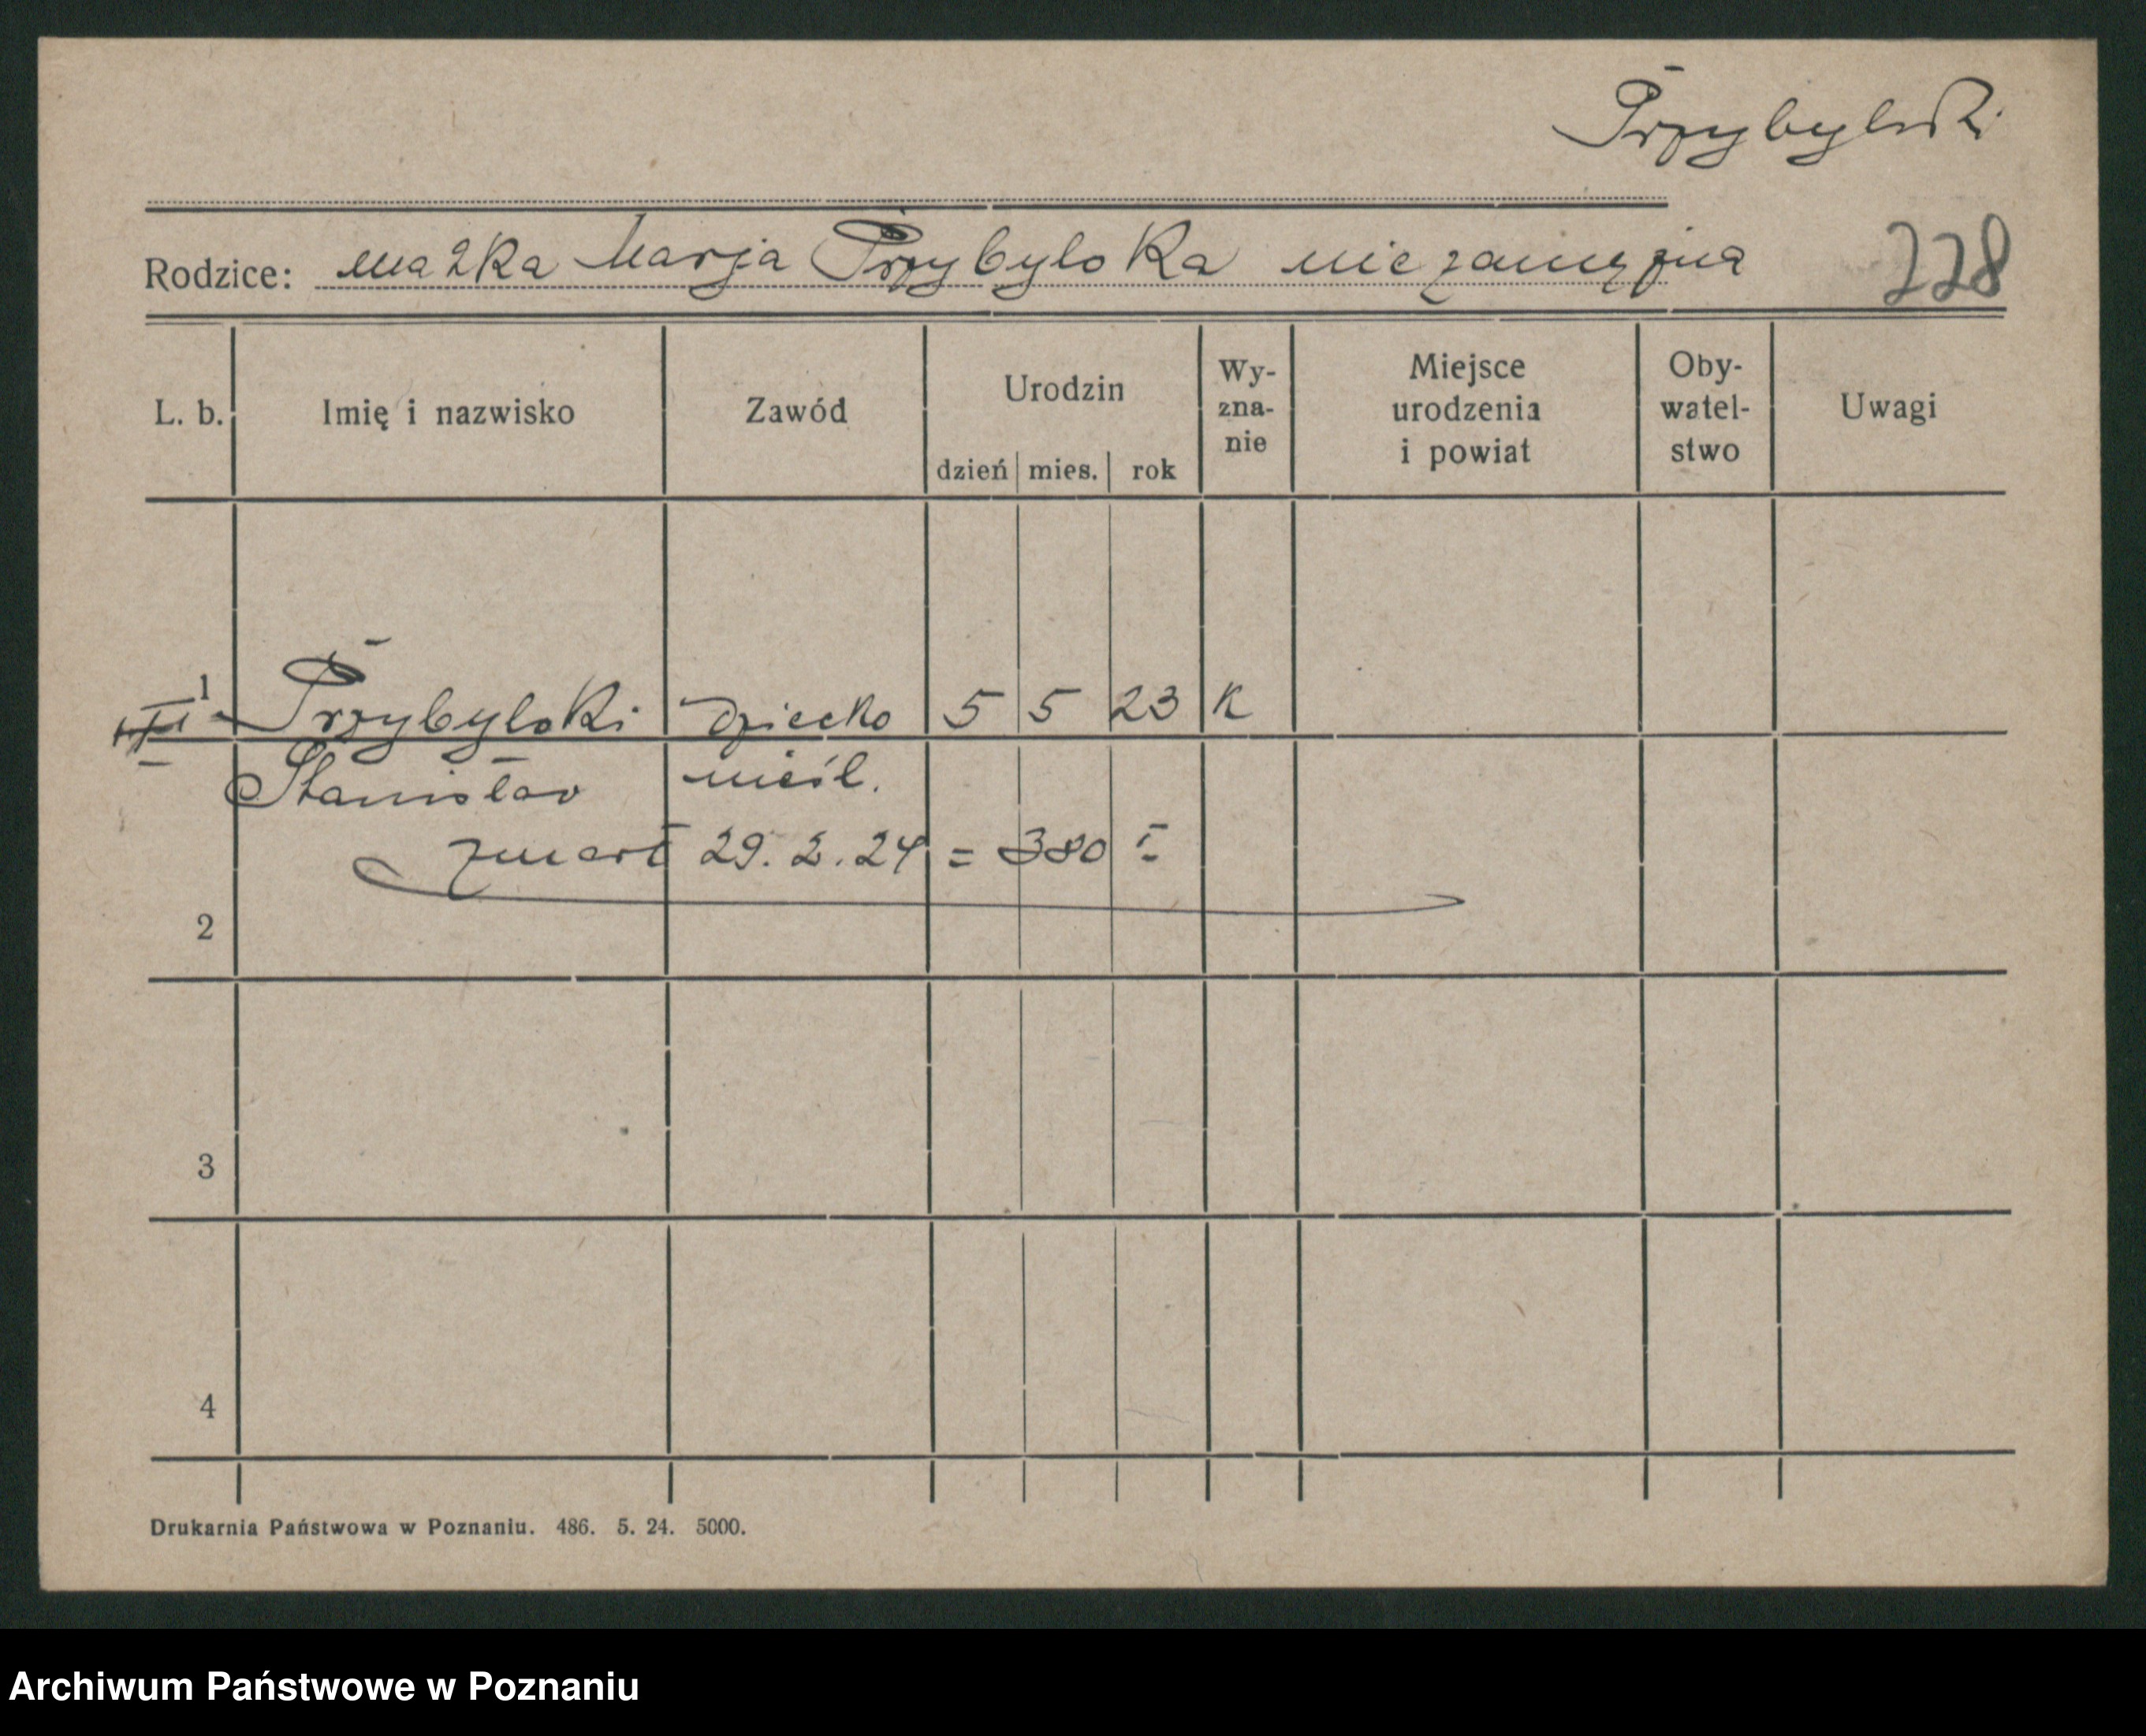 Przybylski
Rodzice: matka Marja Przybylska niezamężna 228
L. b. Imię i nazwisko Zawód Urodzin dzień mies. rok Wy-zna-nie Miejsce urodzenia i powiat Oby-watel-stwo Uwagi
1 Przybylski dziecko 5 5 23 K
Stanisław nieśl.
zmarł 29. 2. 24 = 380 I
2
3
4
Drukarnia Państwowa w Poznaniu. 486. 5. 24. 5000.
Archiwum Państwowe w Poznaniu